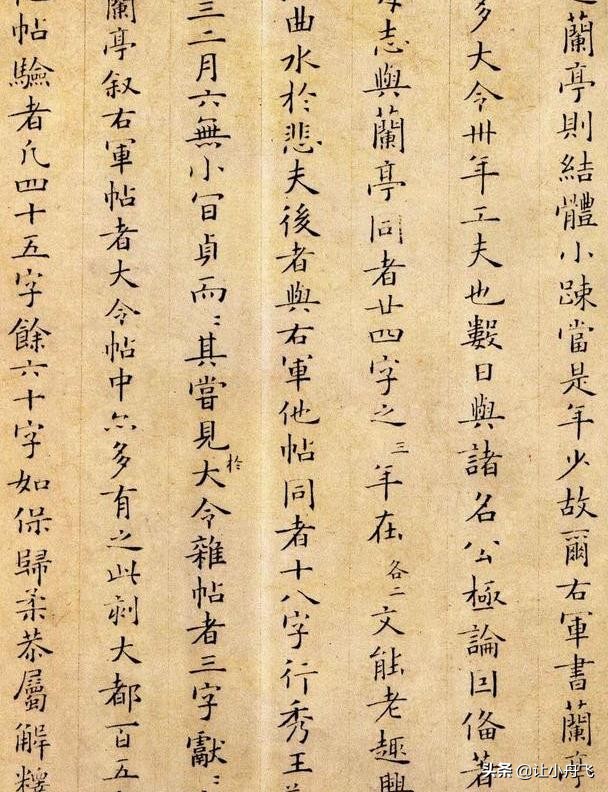 蘭亭則結體小踈當是年少故爾右軍書蘭亭
多大令卅年工夫也數日與諸名公極論因俻著
志與蘭亭同者廿四字之三年在各二文能老趣興
曲水於悲夫後者與右軍他帖同者十八字行秀王
三二月六無小冝貞而〻其嘗見於大令雜帖者三字獻〻
蘭亭叙右軍帖者大令帖中亦多有之此剩大都百五
帖驗者凡四十五字餘六十字如保歸柔恭屬解糧
头条 @让小舟飞